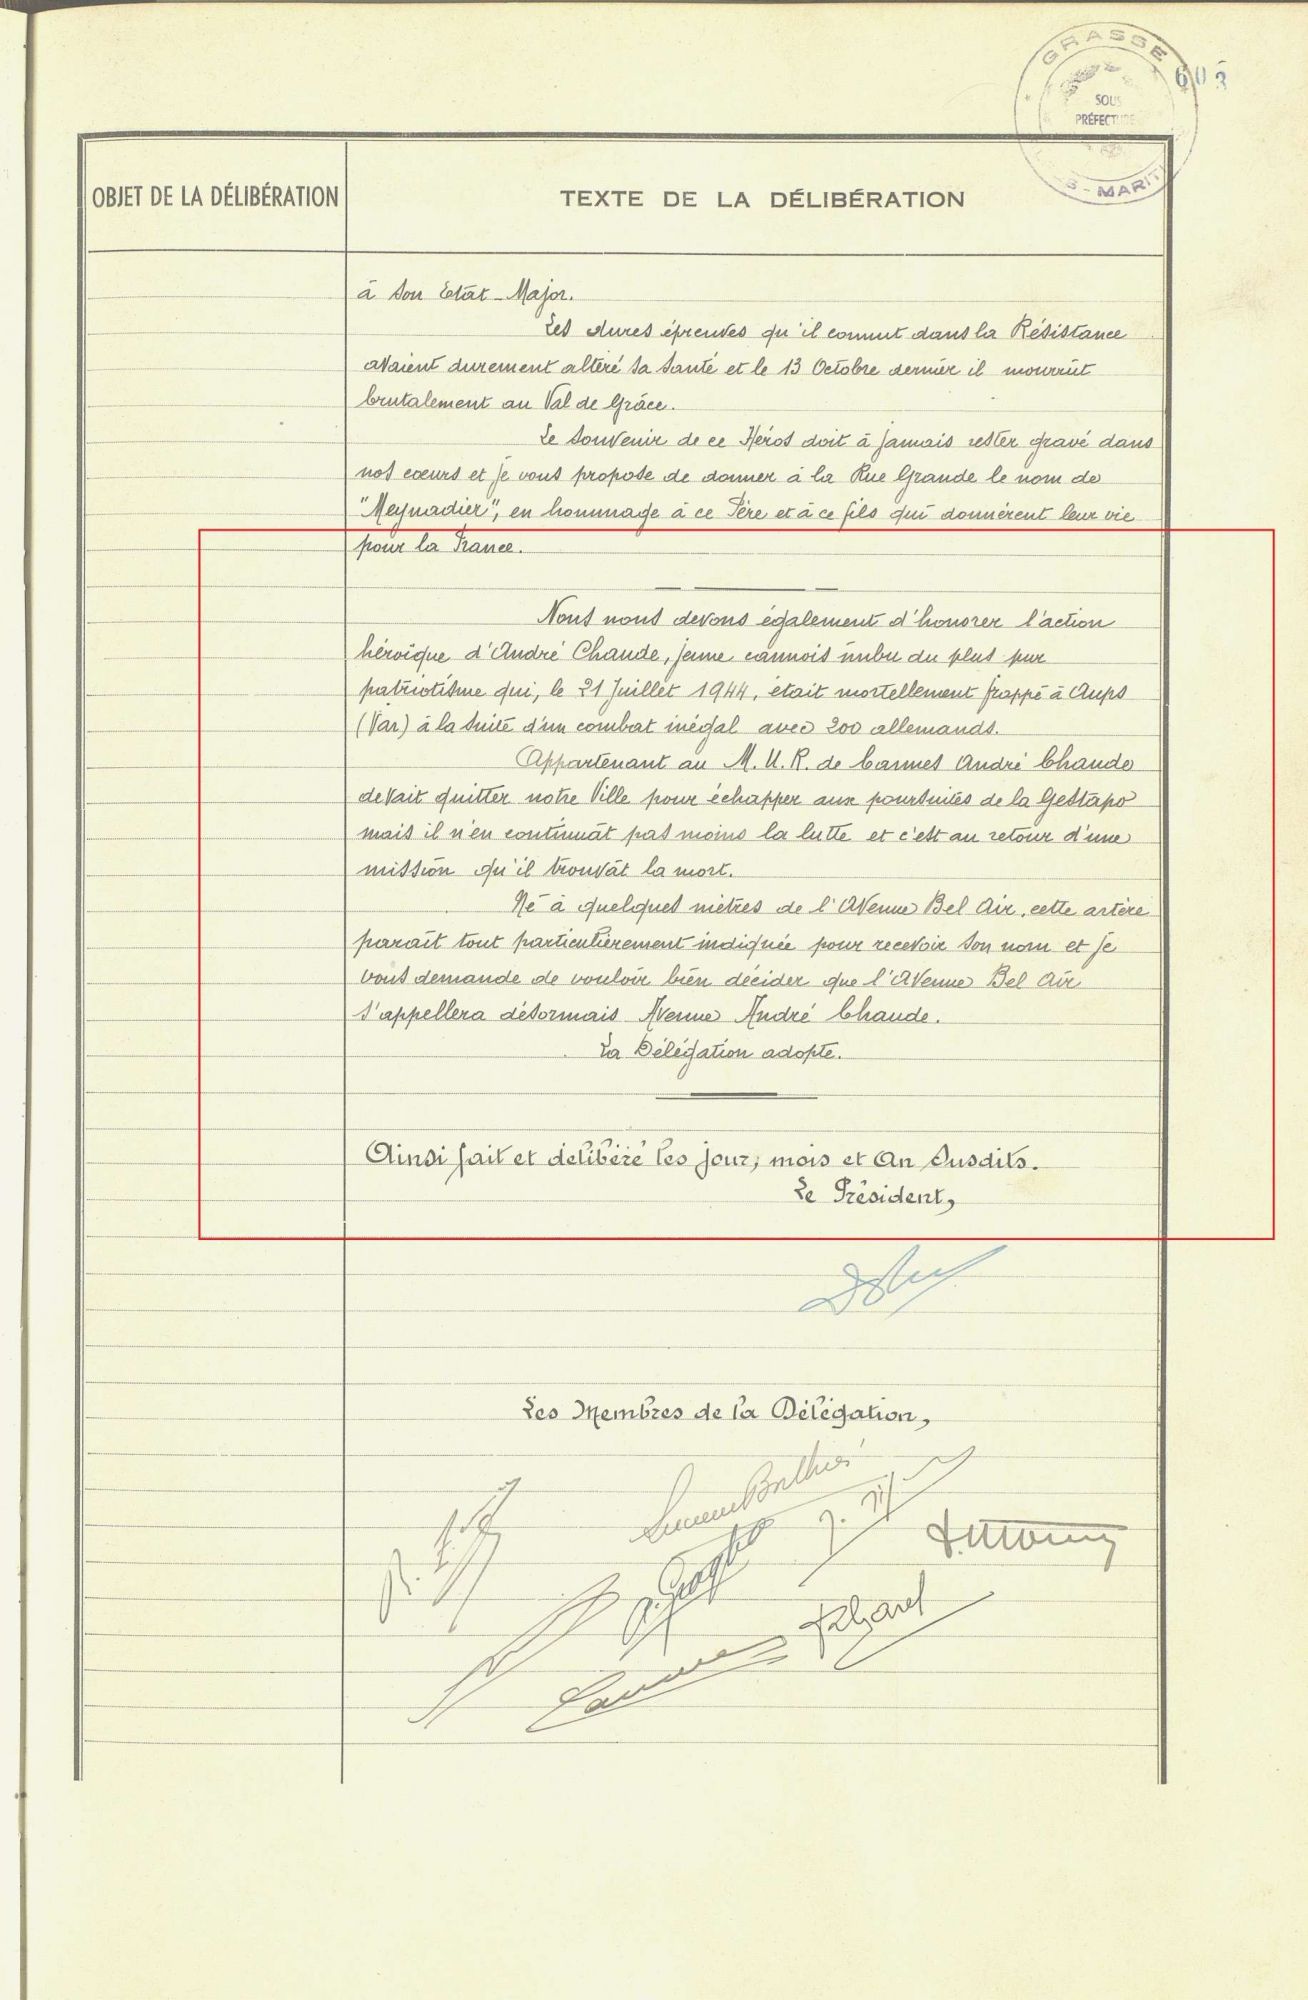 GRASSE
SOUS
PRÉFECTURE
S - MARITI
603
OBJET DE LA DÉLIBÉRATION
TEXTE DE LA DÉLIBÉRATION
à son Etat-Major.
Les dures épreuves qu'il connut dans la Résistance
avaient durement altéré sa santé et le 13 Octobre dernier il mourrût
brutalement au Val de Grâce.
Le souvenir de ce Héros doit à jamais rester gravé dans
nos cœurs et je vous propose de donner à la Rue Grande le nom de
"Meynadier", en hommage à ce Père et à ce fils qui donnèrent leur vie
pour la France.
Nous nous devons également d'honorer l'action
héroïque d'André Chaude, jeune cannois imbu du plus pur
patriotisme qui, le 21 Juillet 1944, était mortellement frappé à Aups
(Var) à la suite d'un combat inégal avec 200 allemands.
Appartenant au M.U.R. de Cannes André Chaude
devait quitter notre Ville pour échapper aux poursuites de la Gestapo
mais il n'en continuât pas moins la lutte et c'est au retour d'une
mission qu'il trouvât la mort.
Né à quelques mètres de l'Avenue Bel Air, cette artère
parait tout particulièrement indiquée pour recevoir son nom et je
vous demande de vouloir bien décider que l'Avenue Bel Air
s'appellera désormais Avenue André Chaude.
La Délégation adopte.
Ainsi fait et délibéré les jour, mois et An susdits.
Le Président,
Les Membres de la Délégation,